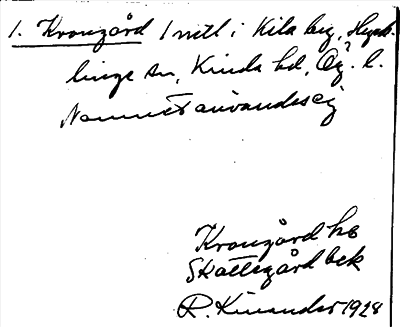 1. Krongård 1 mtl i Kila by, Hyck-
linge sn, Kinda hd, Ög. l.
Namnet användes ej
Krongård hb
Skattegård bek
R. Kinander 1928